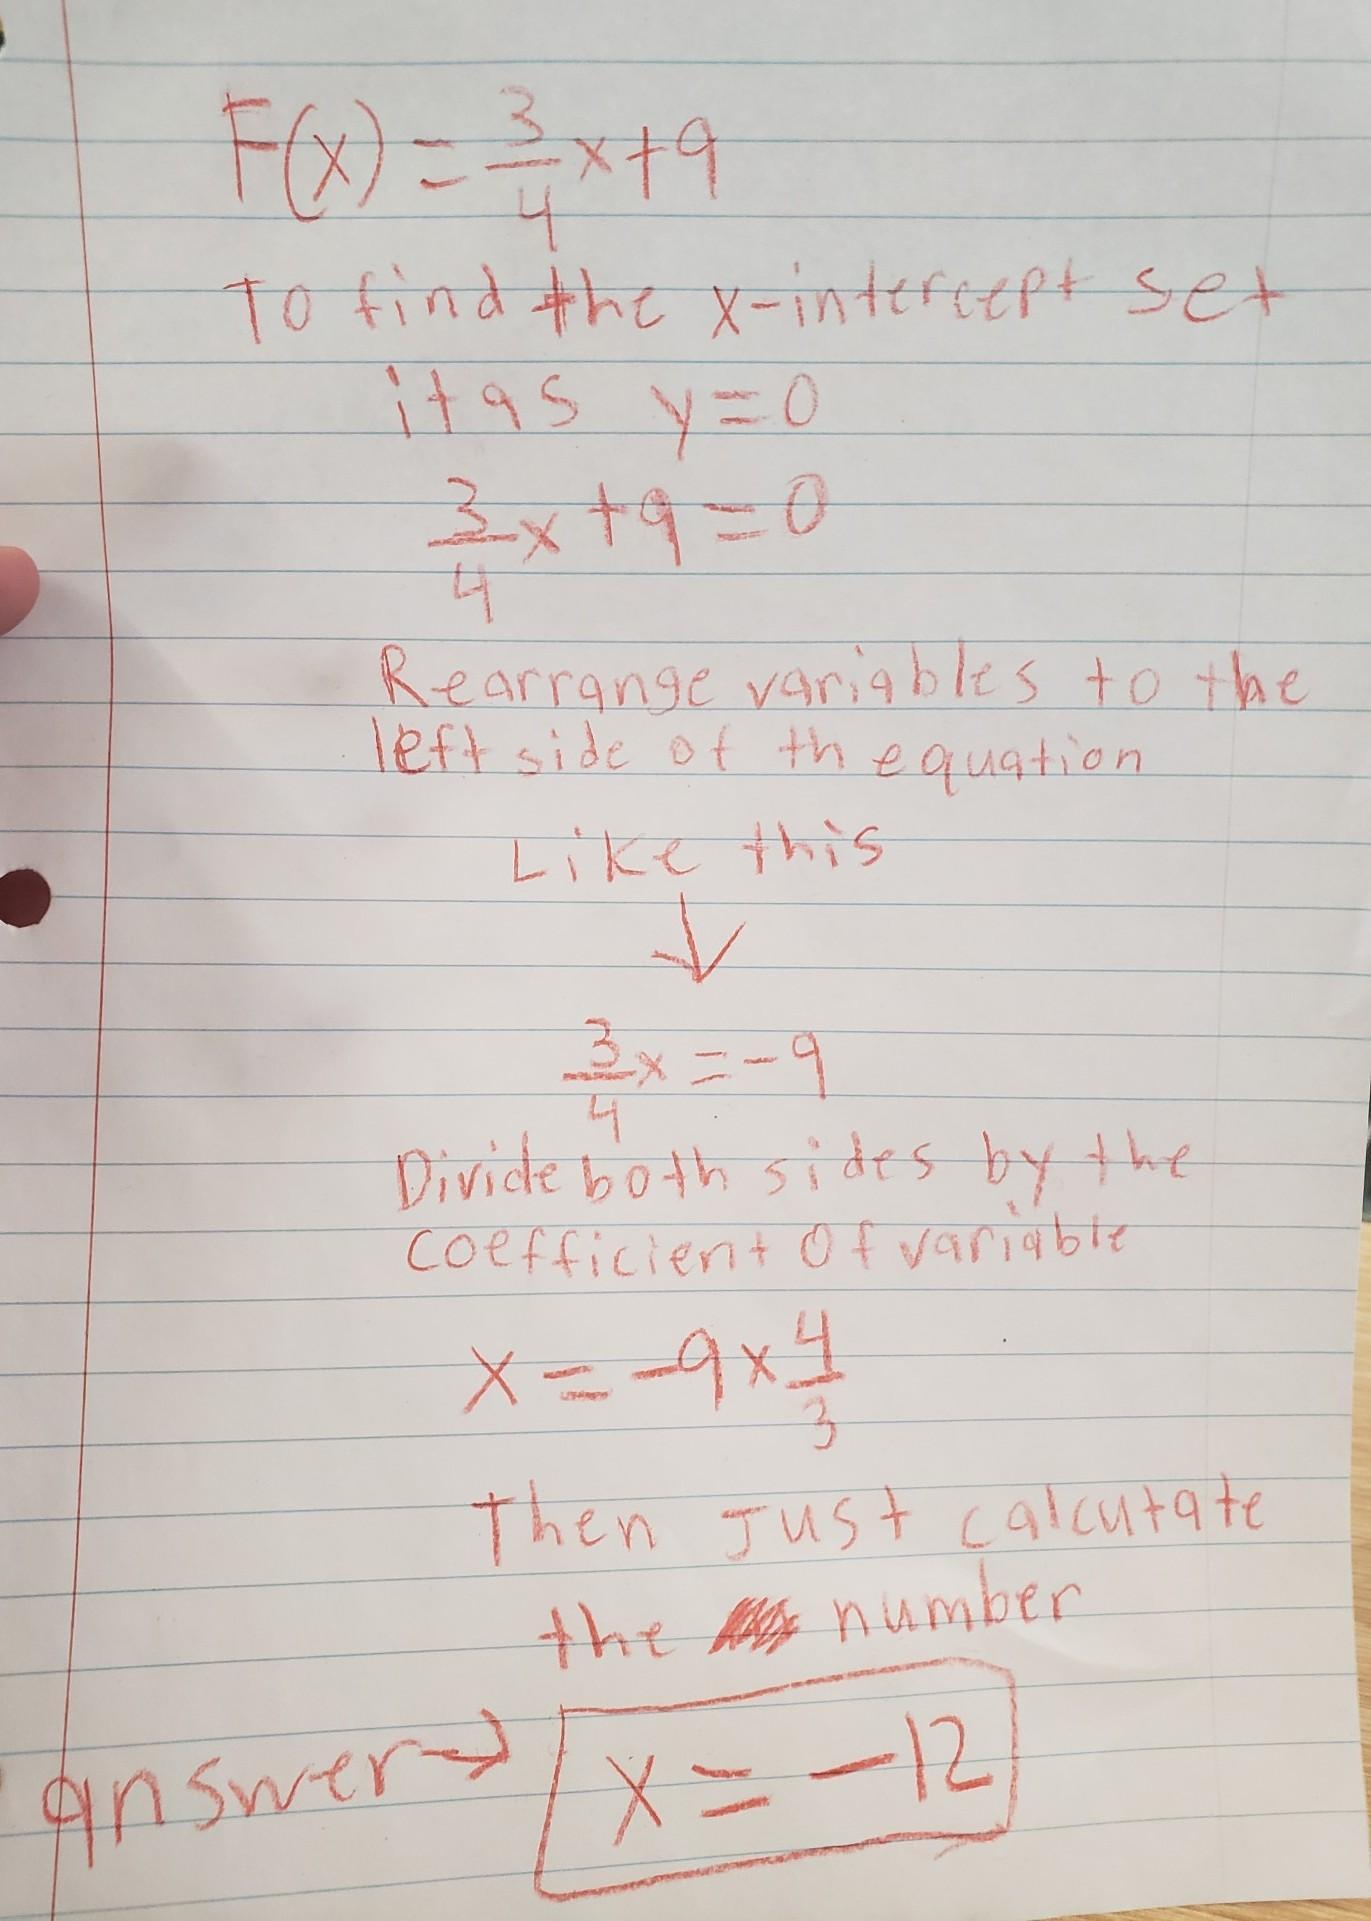 F(x) = 3/4 x + 9
To find the x-intercept set
it as y = 0
3/4 x + 9 = 0
Rearrange variables to the
left side of th equation
Like this
↓
3/4 x = -9
Divide both sides by the
coefficient Of variable
x = -9 x 4/3
Then Just calcutate
the number
answer→ x = -12